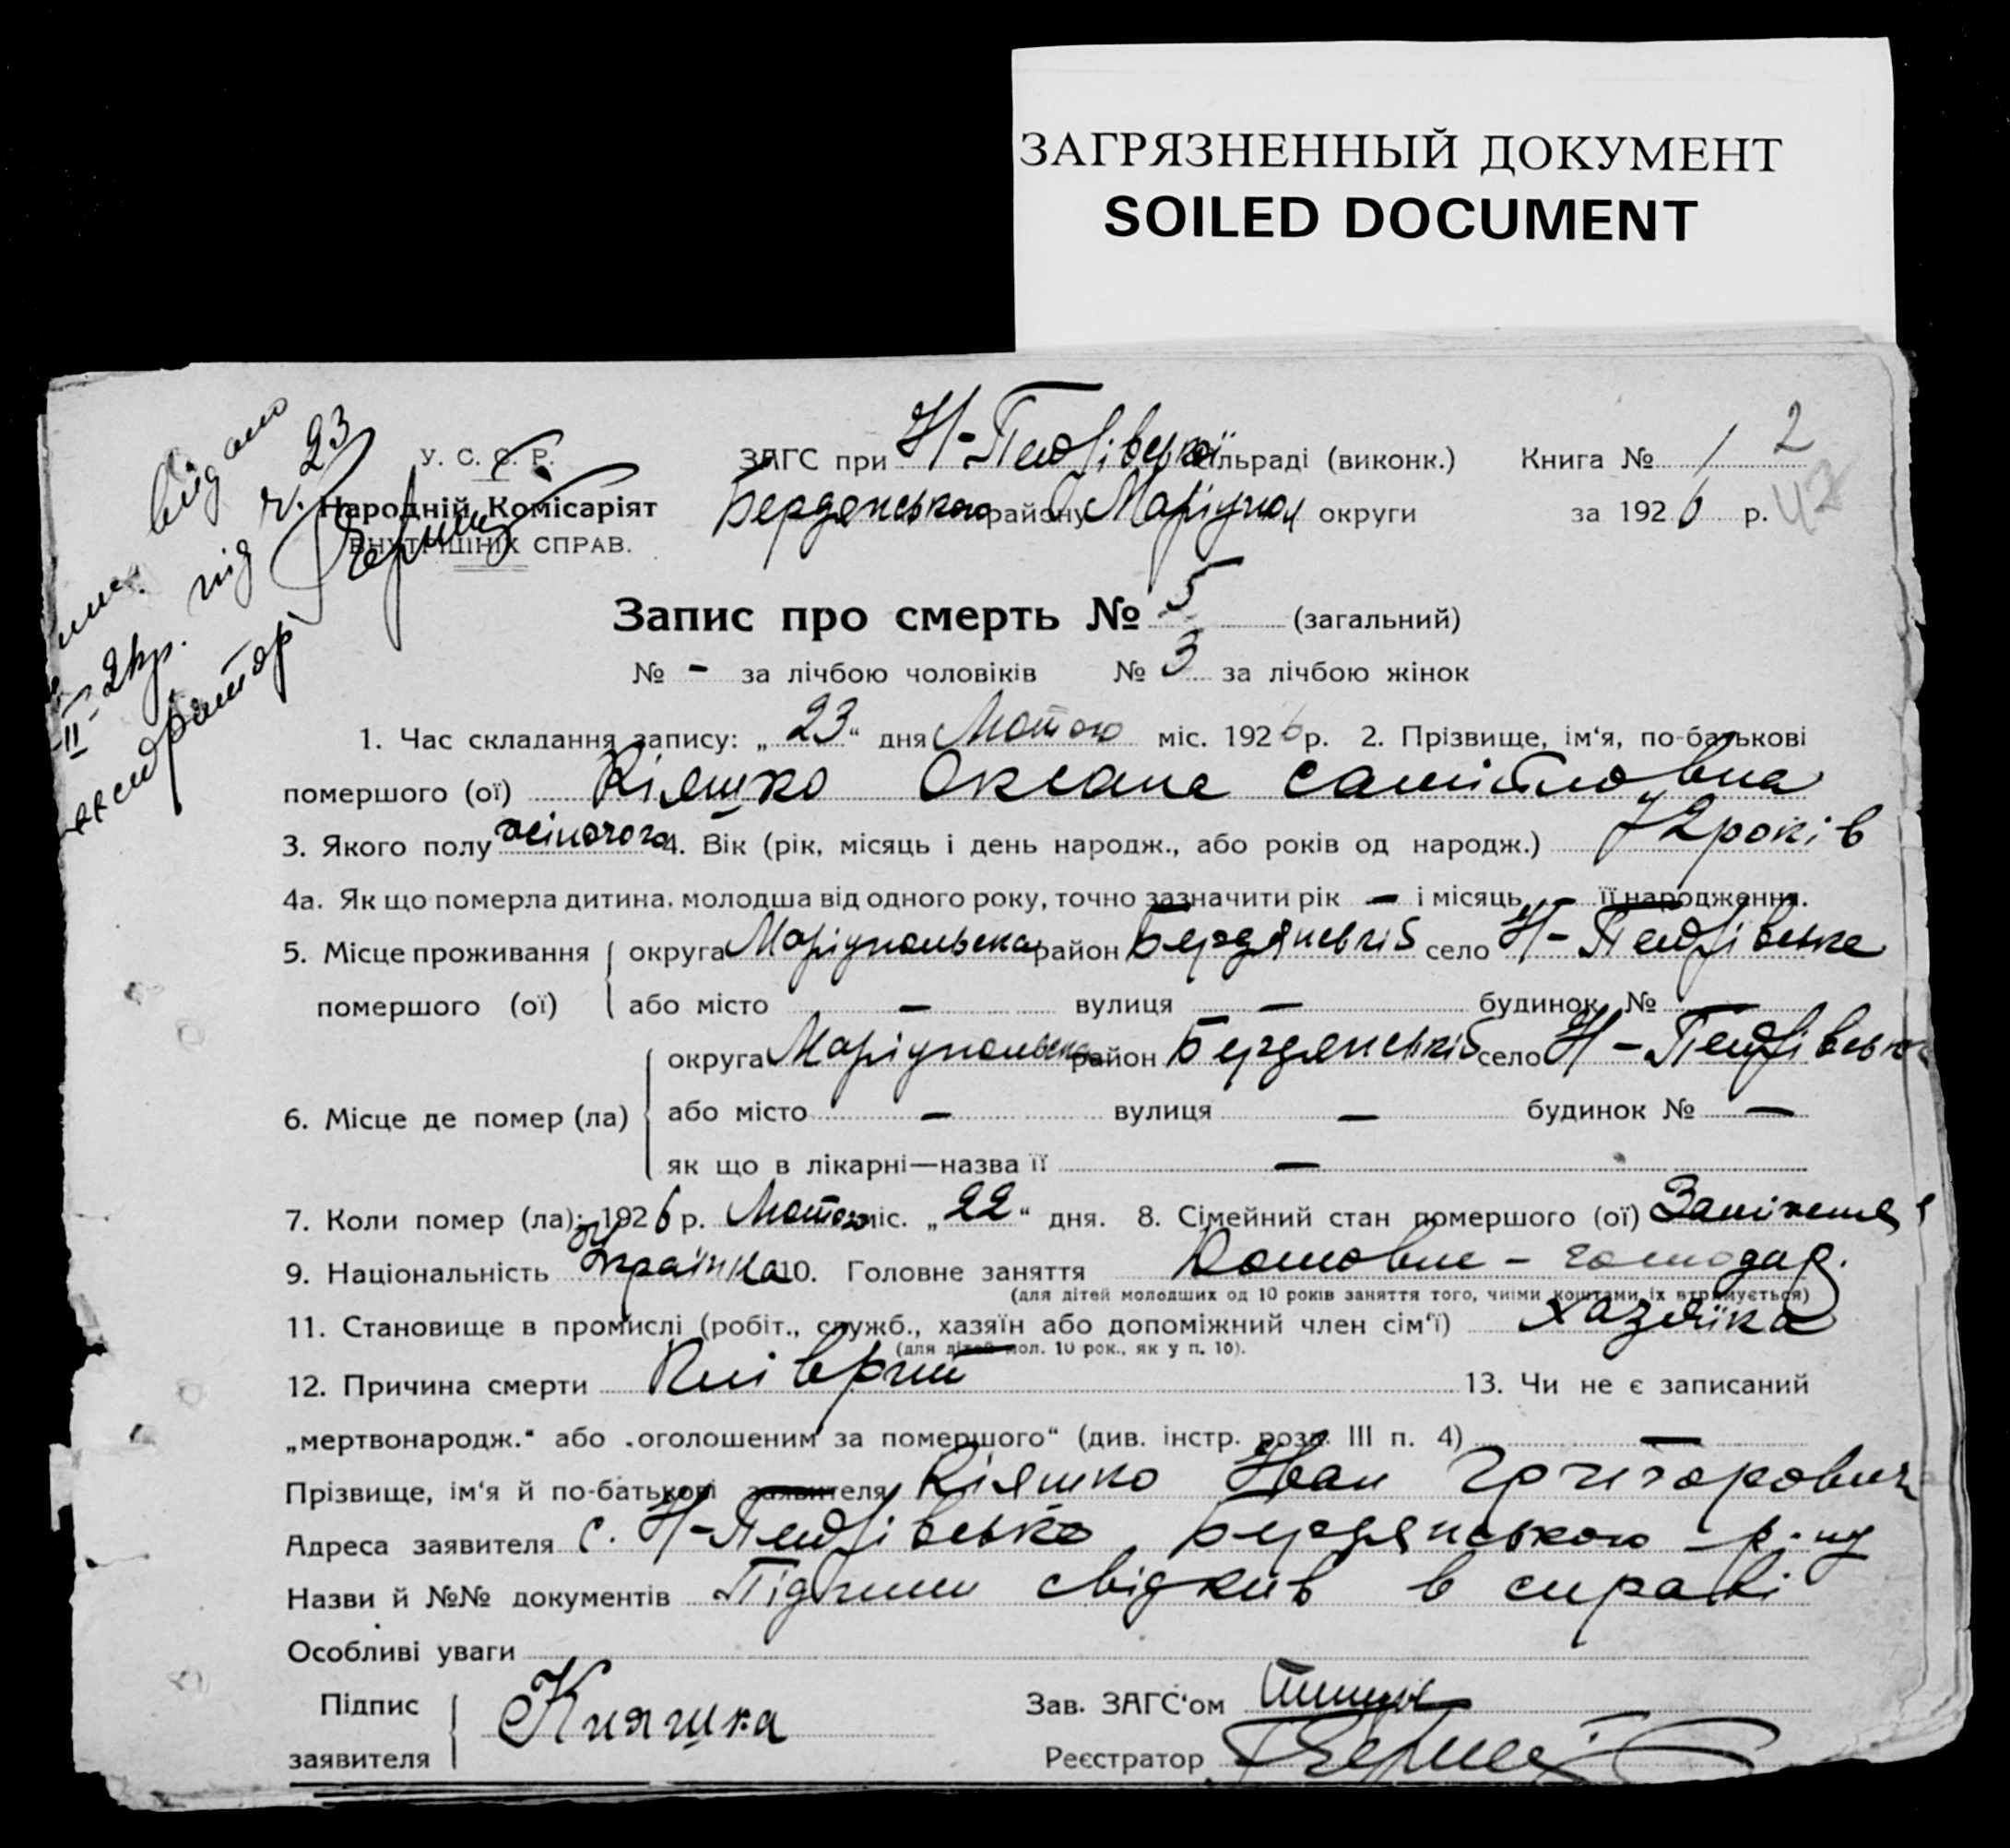 ЗАГРЯЗНЕННЫЙ ДОКУМЕНТ
SOILED DOCUMENT
видано
під ч. 23
У. С. С. Р.
Народній Комісаріят
ВНУТРІШНІХ СПРАВ.
ЗАГС при сільраді (виконк.) Книга № 1 2
Бердянського району Маріупол округи за 1926 р. 42
Запис про смерть № 5 (загальний)
№ - за лічбою чоловіків № 3 за лічбою жінок
1. Час складання запису: „23“ дня Лютого міс. 1926 р. 2. Прізвище, ім‘я, по-батькові
помершого (ої) Кіяшко Оксана Самійловна
3. Якого полу жіночого 4. Вік (рік, місяць і день народж., або років од народж.) 72 років
4а. Як що померла дитина, молодша від одного року, точно зазначити рік — і місяць — її народження.
5. Місце проживання округа Маріупольска район Бердянський село
помершого (ої) або місто — вулиця — будинок № —
округа Маріупольска район Бердянський село
6. Місце де помер (ла) або місто — вулиця — будинок № —
як що в лікарні—назва її —
7. Коли помер (ла): 1926 р. Лютого міс. „22“ дня. 8. Сімейний стан помершого (ої) Заміжня
9. Національність Українка 10. Головне заняття Домовне - господар.
(для дітей молодших од 10 років заняття того, чиїми коштами їх втримується)
11. Становище в промислі (робіт., служб., хазяїн або допоміжний член сім‘ї) хазяїка
(для дітей мол. 10 рок., як у п. 10).
12. Причина смерти 13. Чи не є записаний
„мертвонародж.“ або „оголошеним за помершого“ (див. інстр. розд. III п. 4) —
Прізвище, ім‘я й по-батькові заявителя Кіяшко Іван Григорович
Адреса заявителя с. Бердянського р-ну
Назви й №№ документів Підписи свідків в справі
Особливі уваги
Підпис заявителя Кияшка
Зав. ЗАГС‘ом
Реєстратор